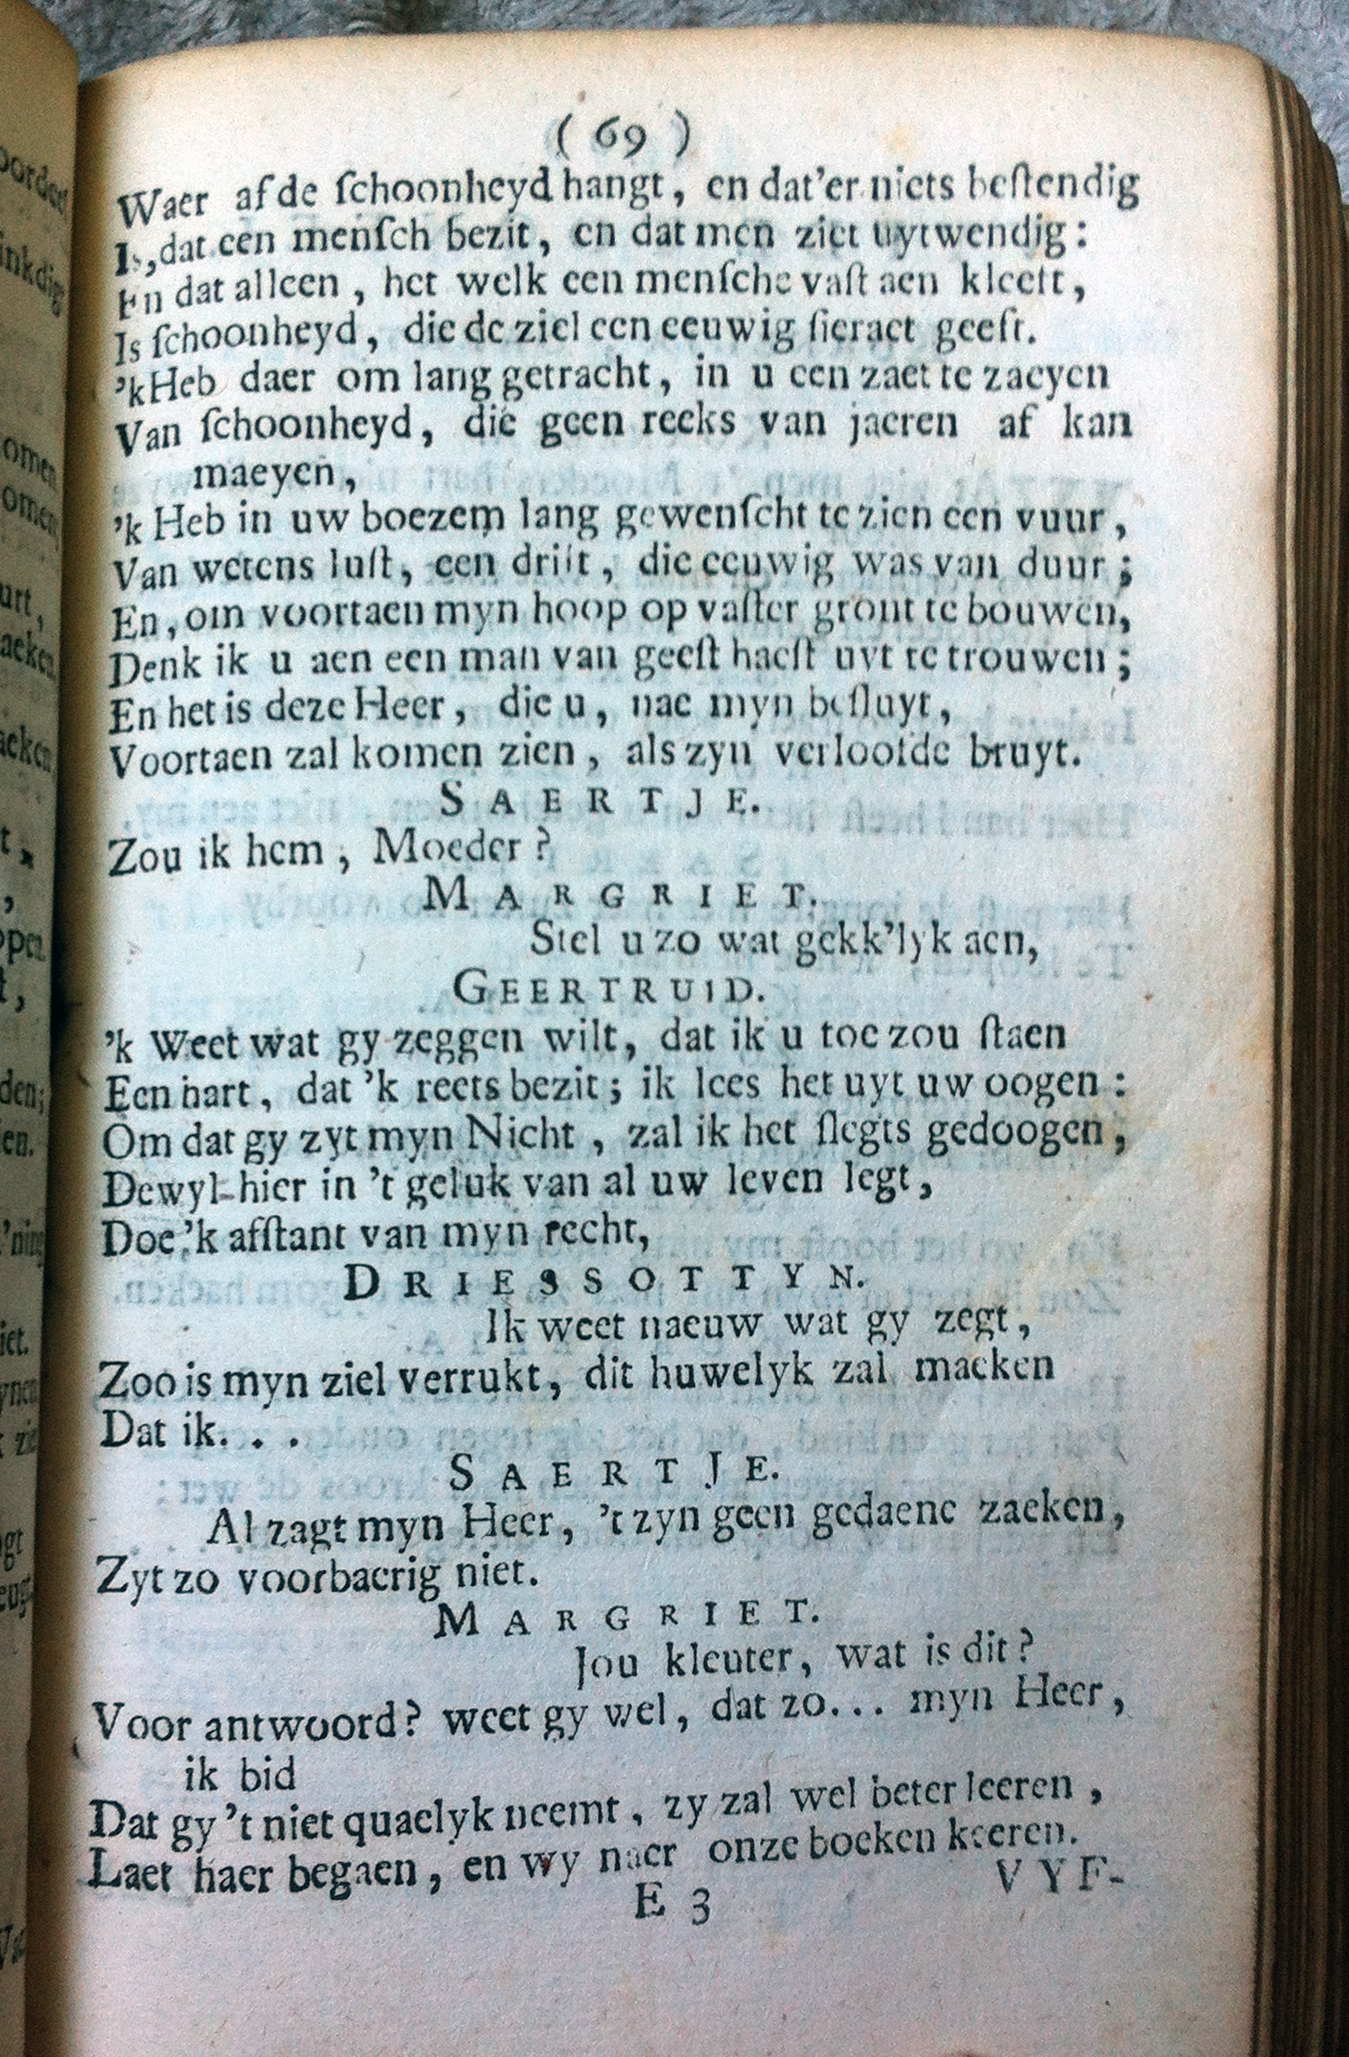 ( 69 )
Waer af de ſchoonheyd hangt, en dat'er niets beſtendig
Is, dat een menſch bezit, en dat men ziet uytwendig:
En dat alleen, het welk een menſche vaſt aen kleeft,
Is ſchoonheyd, die de ziel een eeuwig ſieraet geeft.
'k Heb daer om lang getracht, in u een zaet te zaeyen
Van ſchoonheyd, die geen reeks van jaeren af kan
maeyen,
'k Heb in uw boezem lang gewenſcht te zien een vuur,
Van wetens luſt, een drift, die eeuwig was van duur;
En, om voortaen myn hoop op vaſter gront te bouwen,
Denk ik u aen een man van geeſt haeſt uyt te trouwen;
En het is deze Heer, die u, nae myn beſluyt,
Voortaen zal komen zien, als zyn verloofde bruyt.
SAERTJE.
Zou ik hem, Moeder?
MARGRIET.
Stel u zo wat gekk'lyk aen,
GEERTRUID.
'k Weet wat gy zeggen wilt, dat ik u toe zou ſtaen
Een hart, dat 'k reets bezit; ik lees het uyt uw oogen:
Om dat gy zyt myn Nicht, zal ik het ſlegts gedoogen,
Dewyl hier in 't geluk van al uw leven legt,
Doe 'k afſtant van myn recht,
DRIESSOTTYN.
Ik weet naeuw wat gy zegt,
Zoo is myn ziel verrukt, dit huwelyk zal maeken
Dat ik. . .
SAERTJE.
Al zagt myn Heer, 't zyn geen gedaene zaeken,
Zyt zo voorbaerig niet.
MARGRIET.
Jou kleuter, wat is dit?
Voor antwoord? weet gy wel, dat zo... myn Heer,
ik bid
Dat gy 't niet quaelyk neemt, zy zal wel beter leeren,
Laet haer begaen, en wy naer onze boeken keeren.
E 3 VYF-